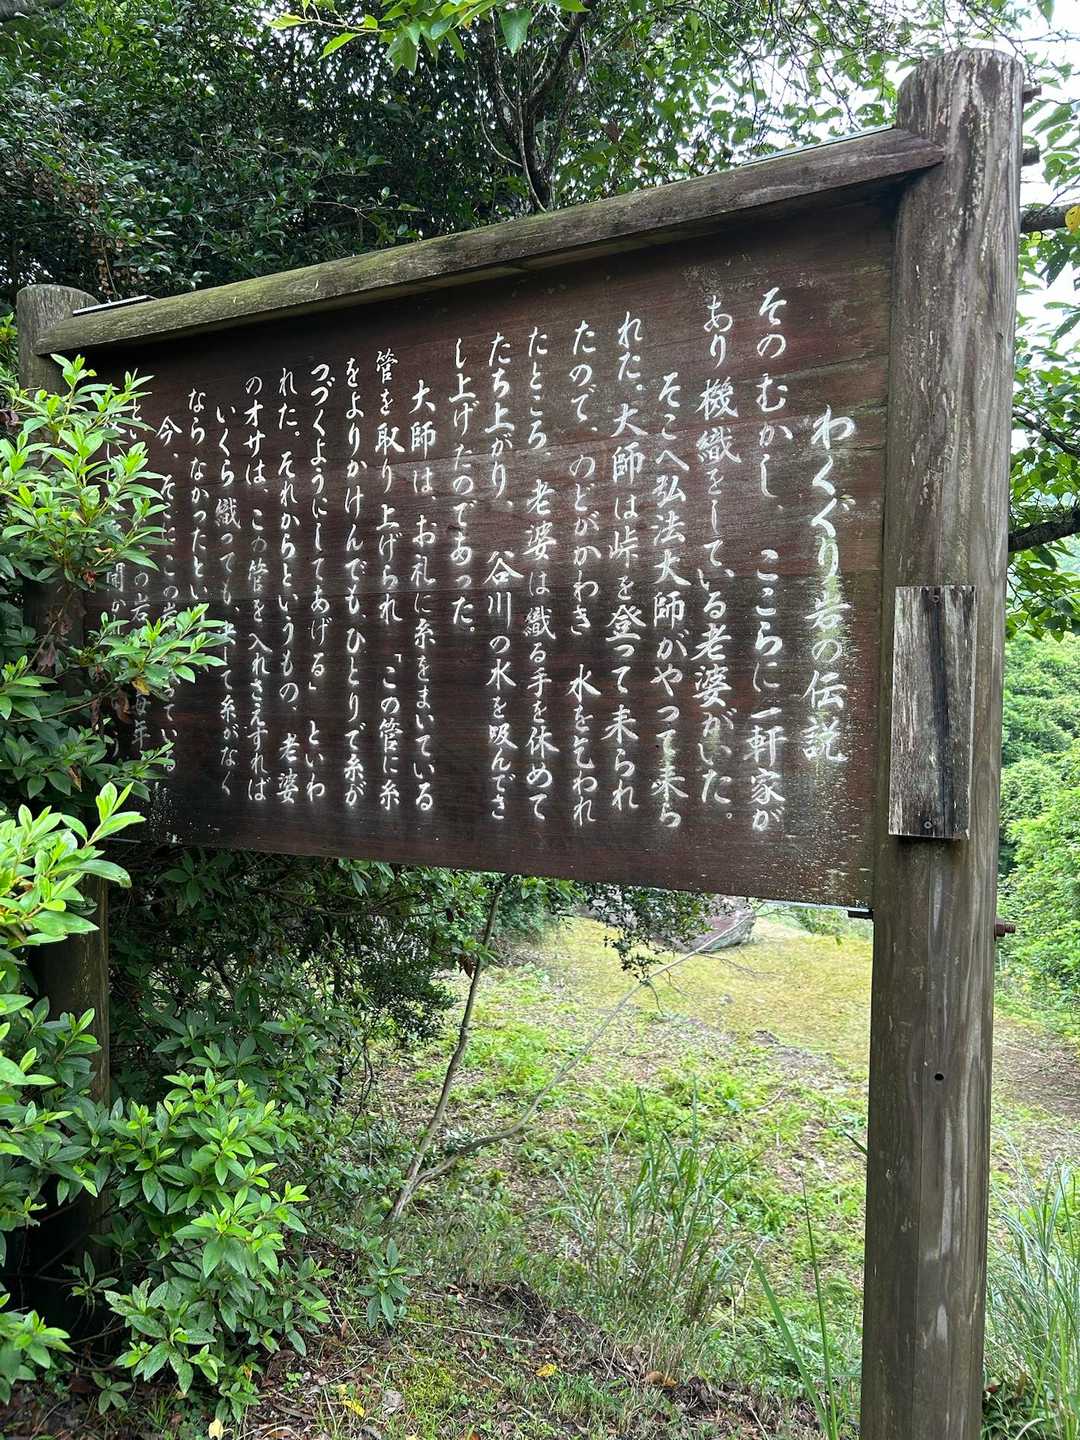 わくぐり岩の伝説
そのむかし、ここらに一軒家が
あり機織をしている老婆がいた。
そこへ弘法大師がやって来ら
れた。大師は峠を登って来られ
たので、のどがかわき水を乞われ
たところ、老婆は織る手を休めて
たち上がり、谷川の水を吸んでさ
し上げたのであった。
大師は、お札に糸をまいている
管を取り上げられ「この管に糸
をよりかけんでも、ひとりで糸が
つづくようにしてあげる」といわ
れた。それからというもの、老婆
のオサは、この管を入れさえすれば
いくら織っても、して糸がなく
ならなかったとい
今、この
の岩
聞か